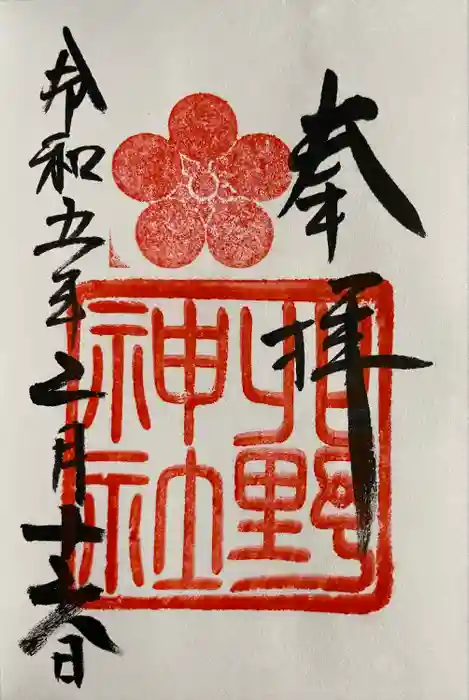 奉拝
野神社
令和五年二月十六日